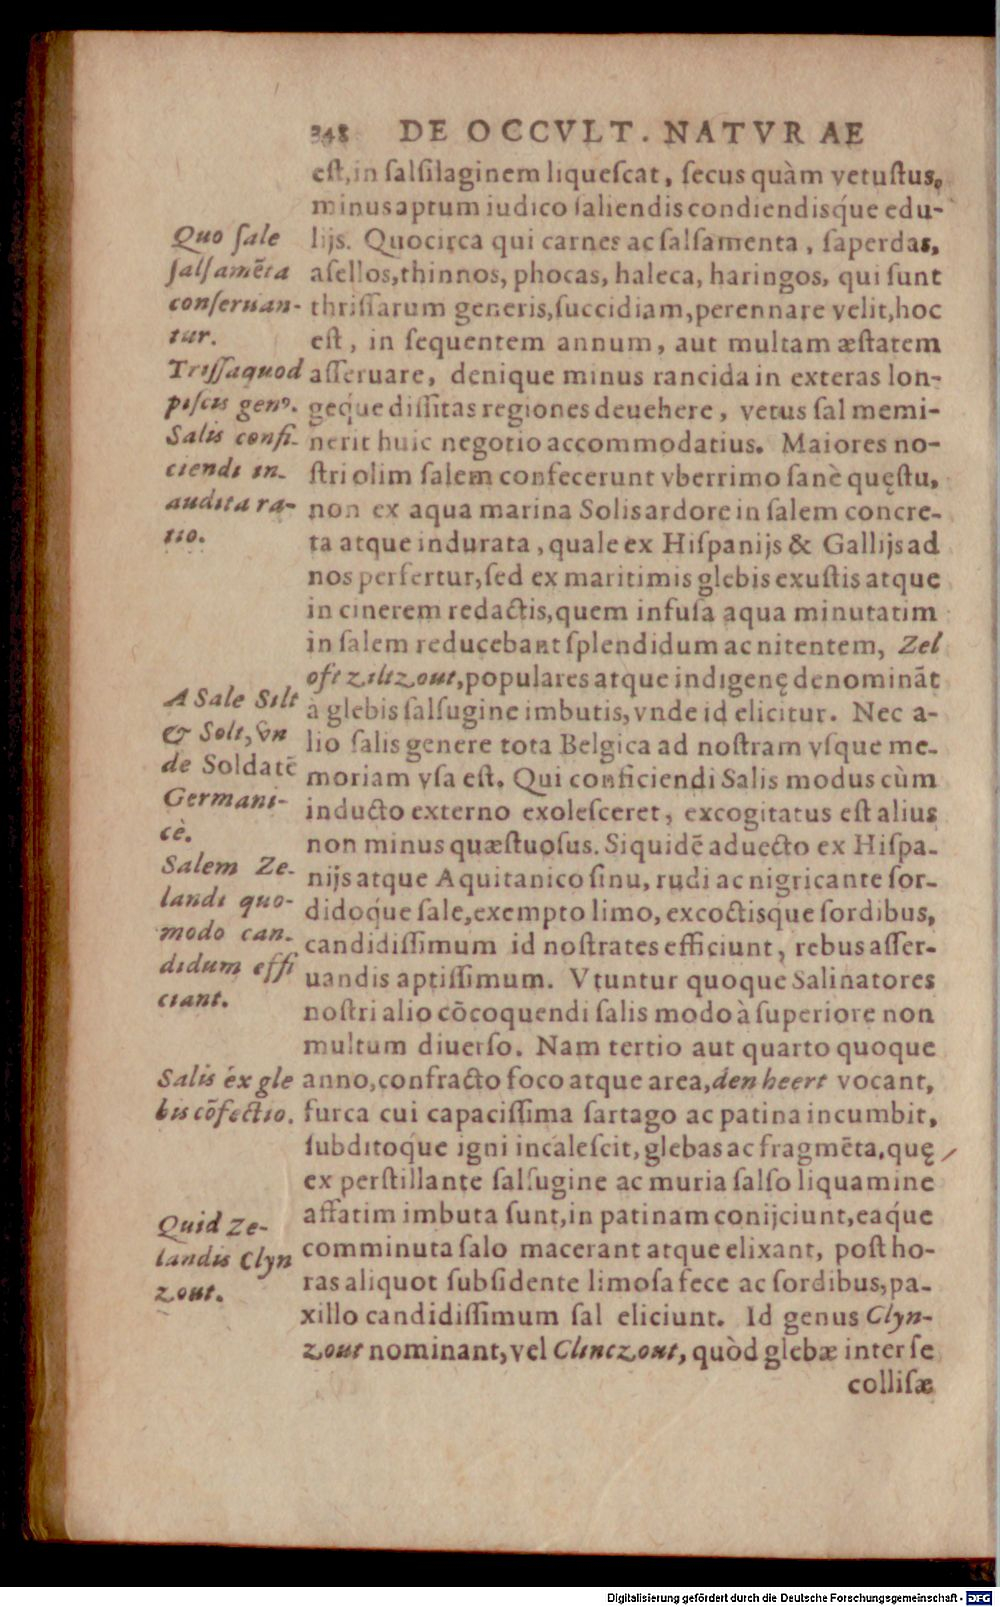 248 DE OCCVLT. NATVRAE
est, in salsilaginem liquescat, secus quàm vetustus,
minus aptum iudico saliendis condiendisq́ue edu-
lijs. Quocirca qui carnes ac salsamenta, saperdas,
asellos, thinnos, phocas, haleca, haringos, qui sunt
thrissarum generis, succidiam, perennare velit, hoc
est, in sequentem annum, aut multam æstatem
asseruare, denique minus rancida in exteras lon-
geq́ue dissitas regiones deuehere, vetus sal memi-
nerit huic negotio accommodatius. Maiores no-
stri olim salem confecerunt vberrimo sanè quęstu,
non ex aqua marina Solis ardore in salem concre-
ta atque indurata, quale ex Hispanijs & Gallijs ad
nos perfertur, sed ex maritimis glebis exustis atque
in cinerem redactis, quem infusa aqua minutatim
in salem reducebant splendidum ac nitentem, Zel
oft ziltzout, populares atque indigenę denominãt
à glebis salsugine imbutis, vnde id elicitur. Nec a-
lio salis genere tota Belgica ad nostram vsque me-
moriam vsa est. Qui conficiendi Salis modus cùm
inducto externo exolesceret, excogitatus est alius
non minus quæstuosus. Siquidẽ aduecto ex Hispa-
nijs atque Aquitanico sinu, rudi ac nigricante sor-
didoq́ue sale, exempto limo, excoctisque sordibus,
candidissimum id nostrates efficiunt, rebus asser-
uandis aptissimum. Vtuntur quoque Salinatores
nostri alio cõcoquendi salis modo à superiore non
multum diuerso. Nam tertio aut quarto quoque
anno, confracto foco atque area, den heert vocant,
furca cui capacissima sartago ac patina incumbit,
subditoque igni incalescit, glebas ac fragmẽta, quę
ex perstillante salsugine ac muria salso liquamine
affatim imbuta sunt, in patinam conijciunt, eaq́ue
comminuta salo macerant atque elixant, post ho-
ras aliquot subsidente limosa fece ac sordibus, pa-
xillo candidissimum sal eliciunt. Id genus Clyn-
zout nominant, vel Clinczout, quòd glebæ inter se
collisæ
Quo sale
salsamẽta
conseruan-
tur.
Trissa quod
piscis genꝰ.
Salis confi-
ciendi in-
audita ra-
tio.
A Sale Silt
& Solt, vn
de Soldatẽ
Germani-
cè.
Salem Ze-
landi quo-
modo can-
didum effi
ciant.
Salis ex gle
bis cõfectio.
Quid Ze-
landis Clyn
zout.
Digitalisierung gefördert durch die Deutsche Forschungsgemeinschaft - DFG